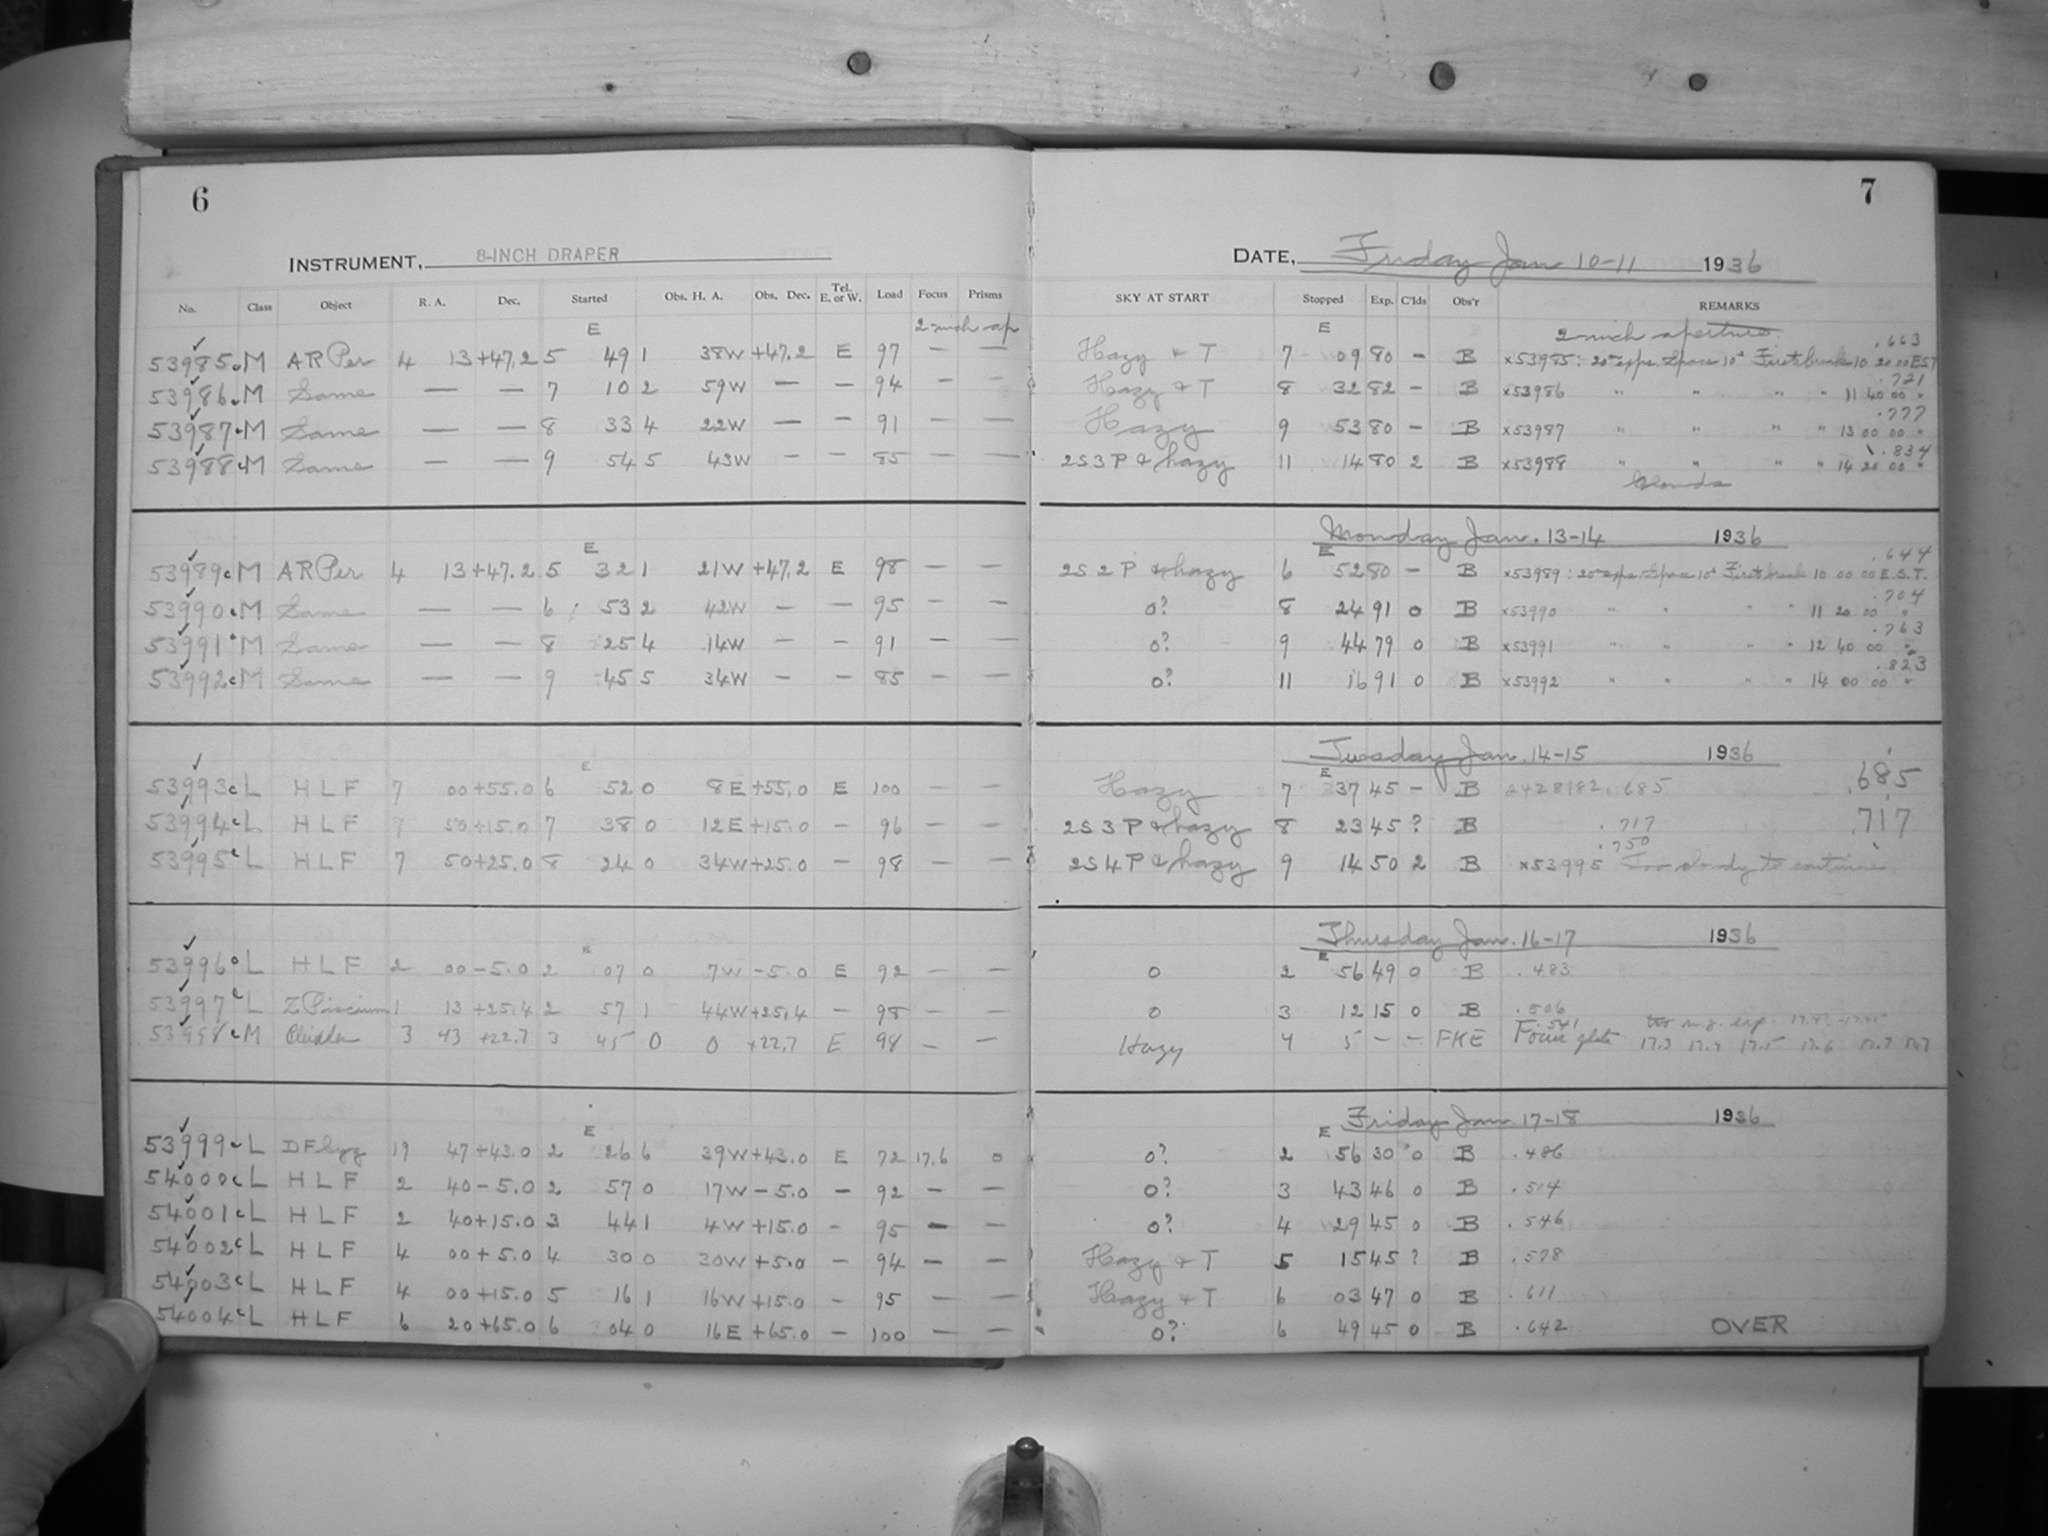 6
INSTRUMENT, 8-INCH DRAPER
No. Class Object R. A. Dec. Started Obs. H. A. Obs. Dec. Tel. E. or W. Load Focus Prisms
E 2 inch ap
53985 c M AR Per 4 13 +47.2 5 49 1 38W +47.2 E 97 — —
53986 c M Same — — 7 10 2 59W — — 94 — —
53987 c M Same — — 8 33 4 22W — — 91 — —
53988 c M Same — — 9 54 5 43W — — 85 — —
E
53989 c M AR Per 4 13 +47.2 5 32 1 21W +47.2 E 98 — —
53990 c M Same — — 6 53 2 42W — — 95 — —
53991 c M Same — — 8 25 4 14W — — 91 — —
53992 c M Same — — 9 45 5 34W — — 85 — —
E
53993 c L H L F 7 00 +55.0 6 52 0 8E +55.0 E 100 — —
53994 c L H L F 7 50 +15.0 7 38 0 12E +15.0 — 96 — —
53995 c L H L F 7 50 +25.0 8 24 0 34W +25.0 — 98 — —
E
53996 c L H L F 2 00 -5.0 2 07 0 7W -5.0 E 92 — —
53997 c L Z Piscium 1 13 +25.4 2 57 1 44W +25.4 — 98 — —
53998 c M Pleiades 3 43 +22.7 3 45 0 0 +22.7 E 98 — —
E
53999 c L DF Cyg 19 47 +43.0 2 26 6 39W +43.0 E 72 17.6 0
54000 c L H L F 2 40 -5.0 2 57 0 17W -5.0 — 92 — —
54001 c L H L F 2 40 +15.0 3 44 1 4W +15.0 — 95 — —
54002 c L H L F 4 00 +5.0 4 30 0 30W +5.0 — 94 — —
54003 c L H L F 4 00 +15.0 5 16 1 16W +15.0 — 95 — —
54004 c L H L F 6 20 +65.0 6 04 0 16E +65.0 — 100 — —
7
DATE, Friday Jan 10-11 1936
SKY AT START Stopped Exp. C'lds Obs'r REMARKS
E 2 inch aperture .663
Hazy & T 7 09 80 — B x53985: 20 exps. Space 10 First break 10 20 00 EST
.721
Hazy & T 8 32 82 — B x53986 " " " " 11 40 00 "
.777
Hazy 9 53 80 — B x53987 " " " " 13 00 00 "
.834
2S3P & hazy 11 14 80 2 B x53988 " " " " 14 20 00 "
Clouds
Monday Jan. 13-14 1936
E .644
2S2P & hazy 6 52 80 — B x53989: 20 exps. Space 10 First break 10 00 00 E.S.T.
.704
0? 8 24 91 0 B x53990 " " " " 11 20 00 "
.763
0? 9 44 79 0 B x53991 " " " " 12 40 00 "
.823
0? 11 16 91 0 B x53992 " " " " 14 00 00 "
Tuesday Jan. 14-15 1936
E .685
Hazy 7 37 45 — B 2428182.685
2S3P & hazy 8 23 45 ? B .717 .717
.750
2S4P & hazy 9 14 50 2 B x53995 Too cloudy to continue.
Thursday Jan. 16-17 1936
E
0 2 56 49 0 B .483
0 3 12 15 0 B .506
.541
Hazy 4 5 — — FKE Focus plate 17.3 17.4 17.5 17.6 17.7
Friday Jan. 17-18 1936
E
0? 2 56 30 0 B .486
0? 3 43 46 0 B .514
0? 4 29 45 0 B .546
Hazy & T 5 15 45 ? B .578
Hazy & T 6 03 47 0 B .611
0? 6 49 45 0 B .642 OVER